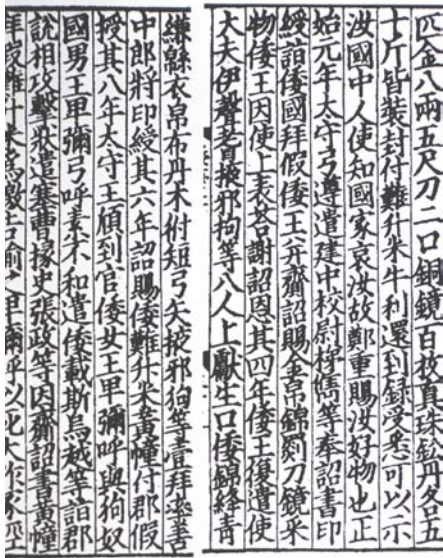 匹金八兩五尺刀二口銅鏡百枚真珠鈆丹各五
十斤皆裝封付難升米牛利還到録受悉可以示
汝國中人使知國家哀汝故鄭重賜汝好物也正
始元年太守弓遵遣建中校尉梯儁等奉詔書印
綬詣倭國拜假倭王并齎詔賜金帛錦罽刀鏡采
物倭王因使上表荅謝詔恩其四年倭王復遣使
大夫伊聲耆掖邪狗等八人上獻生口倭錦絳青
縑緜衣帛布丹木附短弓矢掖邪狗等壹拜率善
中郎將印綬其六年詔賜倭難升米黃幢付郡假
授其八年太守王頎到官倭女王卑彌呼與狗奴
國男王卑彌弓呼素不和遣倭載斯烏越等詣郡
說相攻擊狀遣塞曹掾史張政等因齎詔書黃幢
拜假難升米為檄告喻之卑彌呼以死大作冢徑